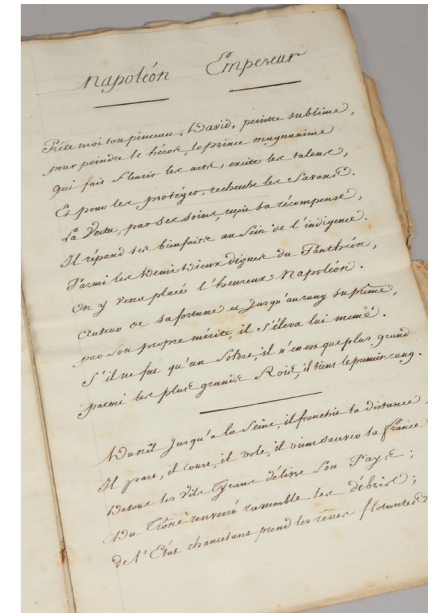 Napoléon Empereur
Prête moi ton pinceau, David, peintre sublime,
pour peindre le héros, le prince magnanime
qui fais fleurir les arts, excite les talens,
Et pour les protéger, recherche les Savans.
La Vertu, par ses soins, reçoit sa récompense,
Il répand ses bienfaits au Sein de l'indigence.
Parmi les Demi-Dieux dignes du Panthéon,
on y verra placé l'heureux Napoléon.
Auteur de sa fortune et Jusqu'au rang suprême,
par Son propre mérite il S'éleva lui même.
S'il ne fut qu'un Soldat, il n'en est que plus grand
parmi les plus grands Rois, il tiens le premier rang.
Du nil Jusqu'à la Seine, il franchit la distance
Il part, il court, il vole, il vient Sauver la france
De tous les Vils Tyrans délivre Son Pays;
Du Trône renversé rassemble les débris;
de l'Etat chancelant prend les rênes flotantes